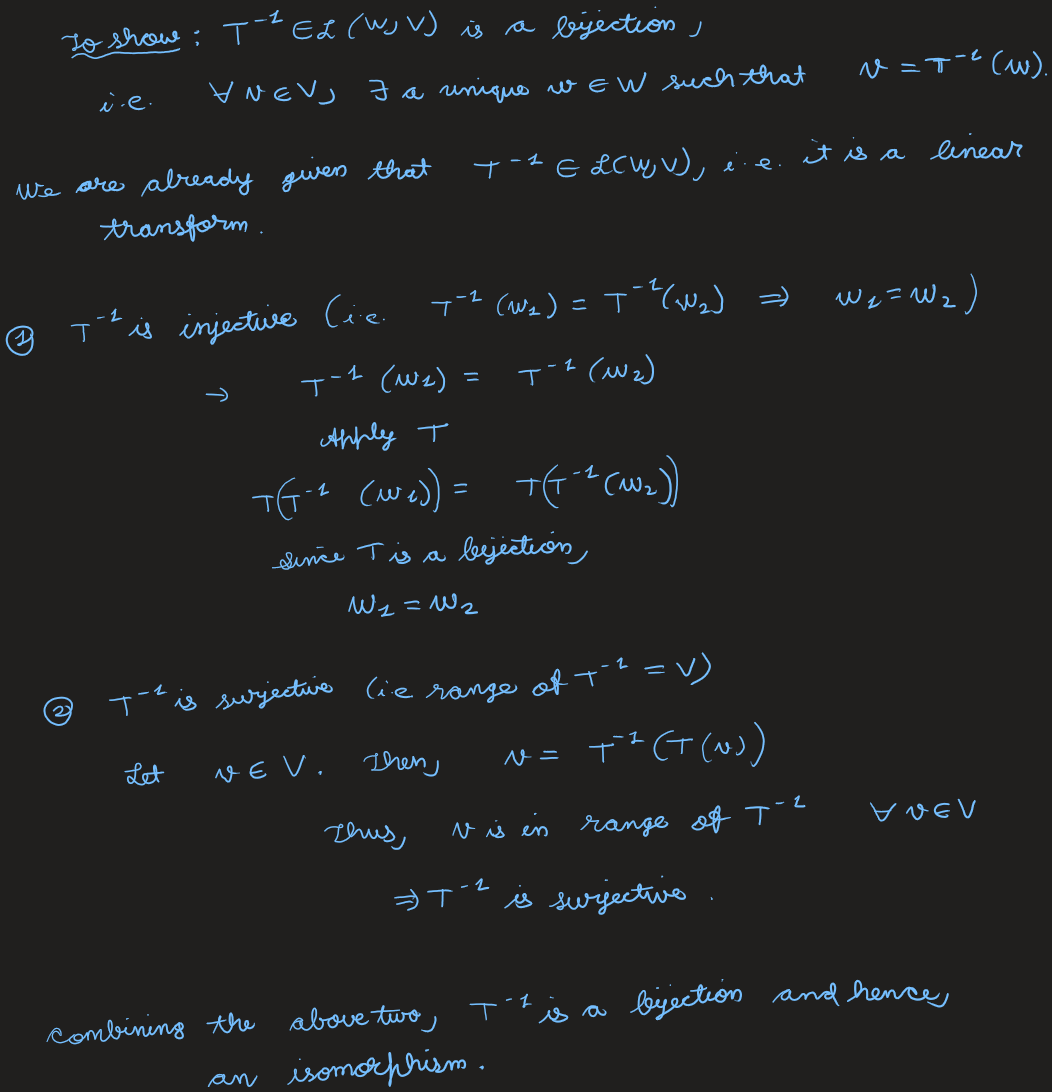 To show : T⁻¹ ∈ ℒ (W, V) is a bijection,
i.e. ∀ v ∈ V, ∃ a unique w ∈ W such that v = T⁻¹ (w).
We are already given that T⁻¹ ∈ ℒ(W, V), i.e. it is a linear
transform.
① T⁻¹ is injective (i.e. T⁻¹ (w₁) = T⁻¹(w₂) ⇒ w₁ = w₂)
→ T⁻¹ (w₁) = T⁻¹ (w₂)
Apply T
T(T⁻¹ (w₁)) = T(T⁻¹ (w₂))
Since T is a bijection,
w₁ = w₂
② T⁻¹ is surjective (i.e range of T⁻¹ = V)
Let v ∈ V. Then, v = T⁻¹ (T (v))
Thus, v is in range of T⁻¹ ∀ v ∈ V
⇒ T⁻¹ is surjective.
Combining the above two, T⁻¹ is a bijection and hence,
an isomorphism.